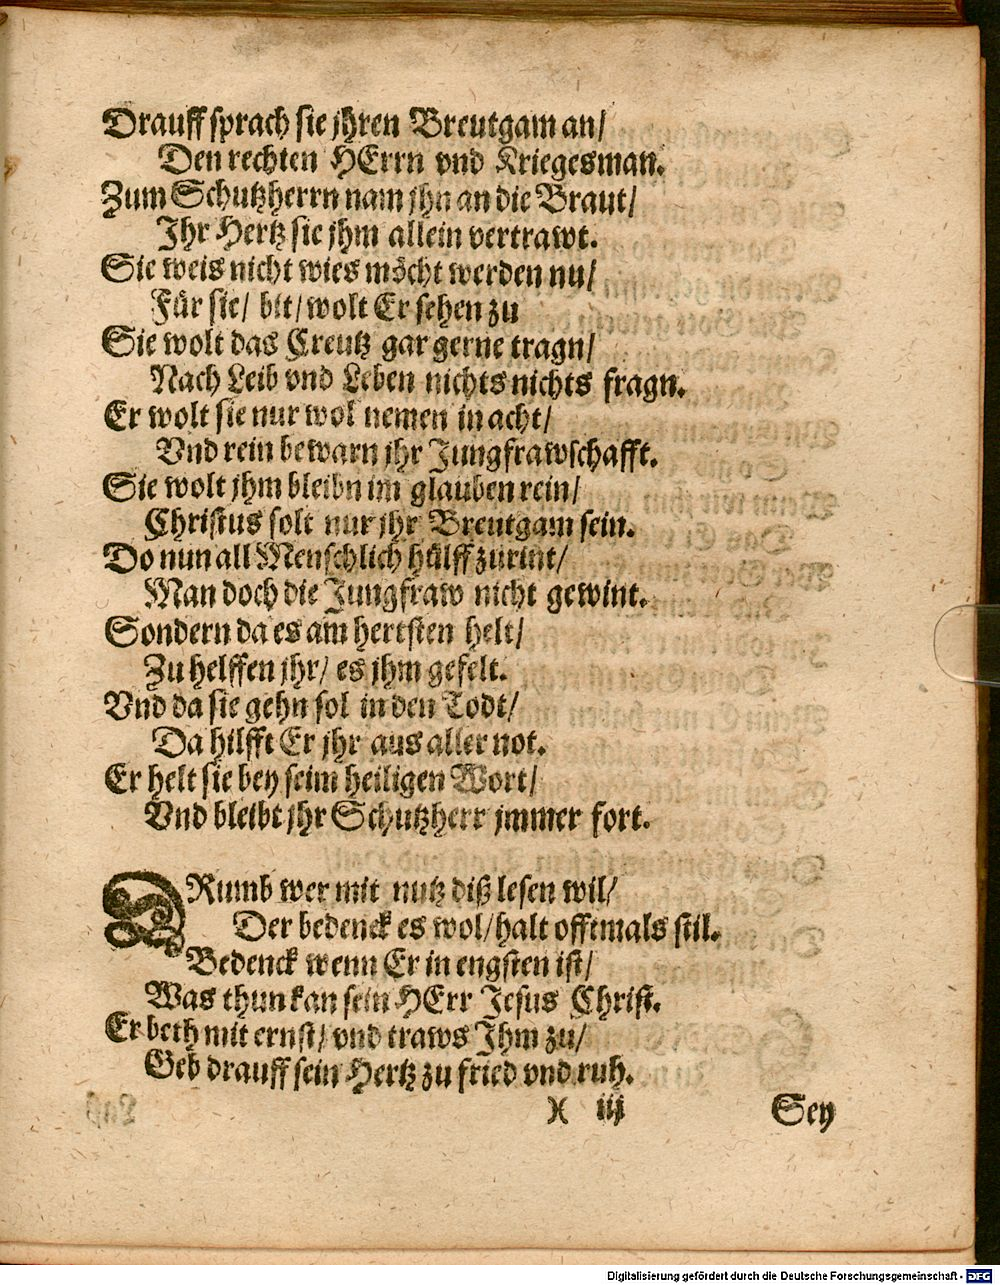 Drauff sprach sie jhren Breutgam an/
Den rechten HErrn vnd Kriegesman.
Zum Schutzherrn nam jhn an die Braut/
Ihr Hertz sie jhm allein vertrawt.
Sie weis nicht wies möcht werden nu/
Für sie/ bit/ wolt Er sehen zu
Sie wolt das Creutz gar gerne tragn/
Nach Leib vnd Leben nichts nichts fragn.
Er wolt sie nur wol nemen in acht/
Vnd rein bewarn jhr Jungfrawschafft.
Sie wolt jhm bleibn im glauben rein/
Christus solt nur jhr Breutgam sein.
Do nun all Menschlich hülff zurint/
Man doch die Jungfraw nicht gewint.
Sondern da es am hertsten helt/
Zu helffen jhr/ es jhm gefelt.
Vnd da sie gehn sol in den Todt/
Da hilfft Er jhr aus aller not.
Er helt sie bey seim heiligen Wort/
Vnd bleibt jhr Schutzherr jmmer fort.
DRumb wer mit nutz diß lesen wil/
Der bedenck es wol/ halt offtmals stil.
Bedenck wenn Er in engsten ist/
Was thun kan sein HErr Jesus Christ.
Er beth mit ernst/ vnd traws Ihm zu/
Geb drauff sein Hertz zu fried vnd ruh.
)( iij Sey
Digitalisierung gefördert durch die Deutsche Forschungsgemeinschaft - DFG